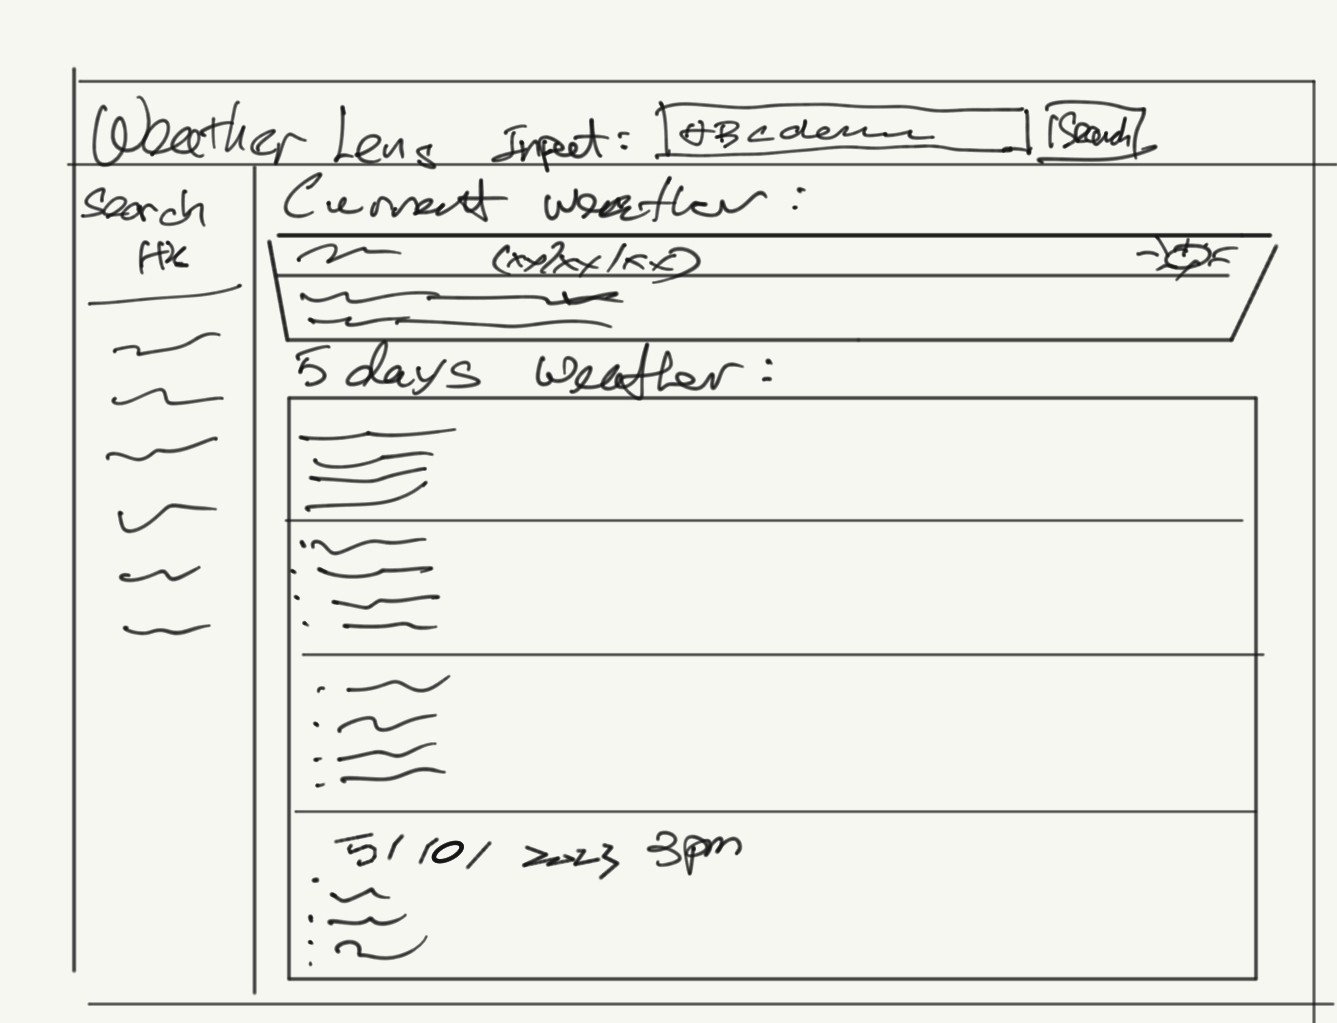 Weather Lens Input: ABcdem Search
Search
HX
Current weather:
(xx/xx/xx)
5 days weather:
5/10/2023 3pm